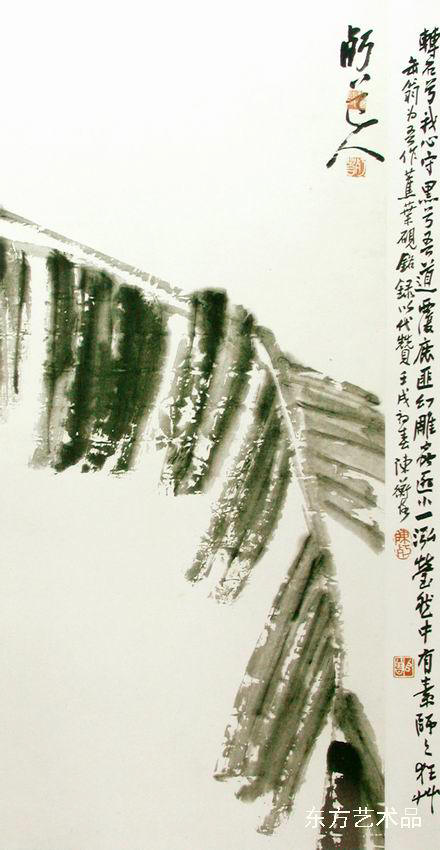 轉石兮我心守黑兮吾道覆鹿匪幻雕蟲匪小一泓瑩然中有素師之狂艸
缶翁为吾作蕉葉硯銘錄以代贊壬戌初春陳衡恪
道人
东方艺术品